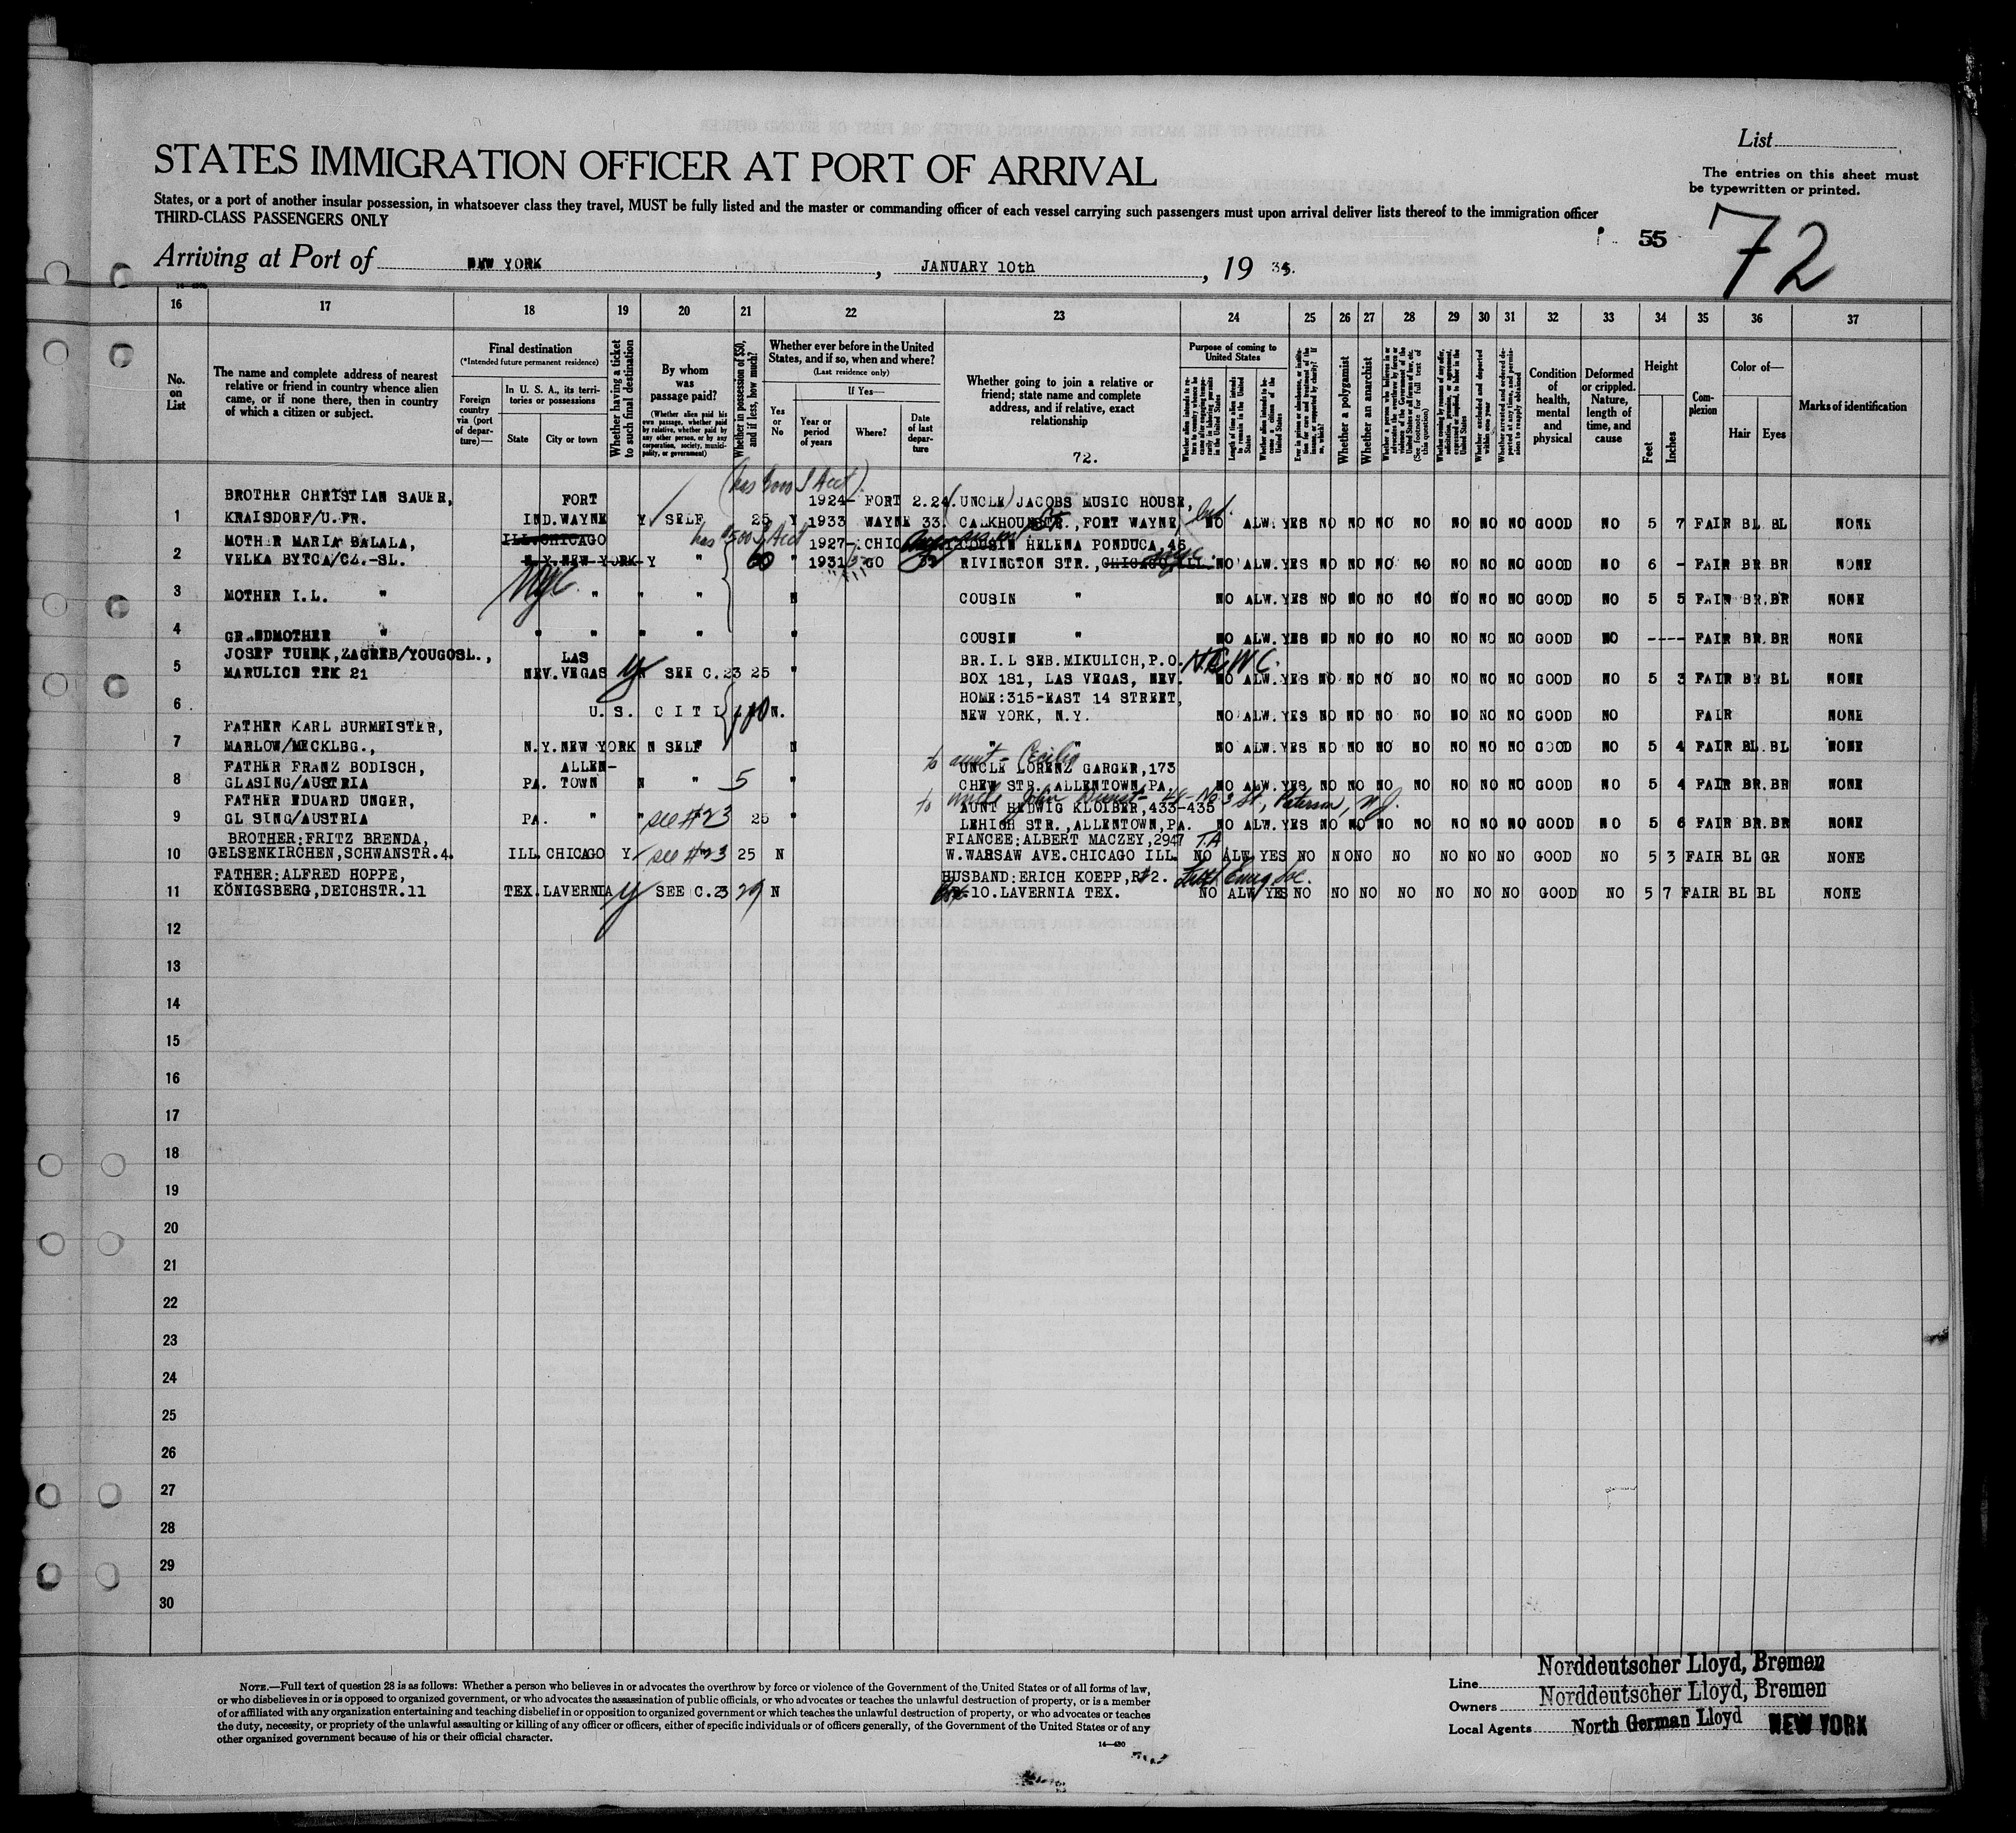 List
STATES IMMIGRATION OFFICER AT PORT OF ARRIVAL
The entries on this sheet must
be typewritten or printed.
States, or a port of another insular possession, in whatsoever class they travel, MUST be fully listed and the master or commanding officer of each vessel carrying such passengers must upon arrival deliver lists thereof to the immigration officer
THIRD-CLASS PASSENGERS ONLY
55 72
Arriving at Port of NEW YORK, JANUARY 10th, 19 35.
16 17 18 19 20 21 22 23 24 25 26 27 28 29 30 31 32 33 34 35 36 37
No. on List
The name and complete address of nearest
relative or friend in country whence alien
came, or if none there, then in country
of which a citizen or subject.
Final destination
(*Intended future permanent residence)
Foreign country via (port of departure)—
In U. S. A., its territories or possessions
State
City or town
Whether having a ticket to such final destination
By whom was passage paid?
(Whether alien paid his own passage, whether paid by relative, whether paid by any other person, or by any corporation, society, municipality, or government)
Whether in possession of $50, and if less, how much?
Whether ever before in the United
States, and if so, when and where?
(Last residence only)
Yes or No
If Yes—
Year or period of years
Where?
Date of last departure
Whether going to join a relative or
friend; state name and complete
address, and if relative, exact
relationship
72.
Purpose of coming to United States
Whether alien intends to return to country whence he came after engaging temporarily in laboring pursuits in the United States
Length of time alien intends to remain in the United States
Whether alien intends to become a citizen of the United States
Ever in prison or almshouse, or institution for care and treatment of the insane, or supported by charity? If so, which?
Whether a polygamist
Whether an anarchist
Whether a person who believes in or advocates the overthrow by force or violence of the Government of the United States or all forms of law, etc. (See footnote for full text of this question)
Whether coming by reason of any offer, solicitation, promise, or agreement, expressed or implied, to labor in the United States
Whether excluded and deported within one year
Whether arrested and ordered deported at any time, and permission to reapply obtained
Condition of health, mental and physical
Deformed or crippled. Nature, length of time, and cause
Height
Feet
Inches
Complexion
Color of—
Hair
Eyes
Marks of identification
BROTHER CHRISTIAN SAUER, FORT 1924- FORT 2.24. UNCLE JACOBS MUSIC HOUSE,
1 KRAISDORF/U.FR. IND. WAYNE Y SELF 25 Y 1933 WAYNE 33. CALKHOUN STR., FORT WAYNE, NO ALW. YES NO NO NO NO NO NO NO GOOD NO 5 7 FAIR BL. BL NONE
MOTHER MARIA BALALA, ILL. CHICAGO has $500 1927- CHIC COUSIN HELENA PONDUCA, 45
2 VELKA BYTCA/CZ.-SL. N.Y. NEW YORK Y " 60 " 1931 GO RIVINGTON STR., CHICAGO ILL. NYC. NO ALW. YES NO NO NO NO NO NO NO GOOD NO 6 - FAIR BR BR NONE
NYC.
3 MOTHER I.L. " " " " N COUSIN " NO ALW. YES NO NO NO NO NO NO NO GOOD NO 5 5 FAIR BR. BR NONE
4 GRANDMOTHER " " " " " " COUSIN " NO ALW. YES NO NO NO NO NO NO NO GOOD NO ---- FAIR BR. BR NONE
JOSEF TUERK, ZAGREB/YOUGOSL., LAS BR. I.L SEB. MIKULICH, P.O. N.C.W.C.
5 MARULICE TRK 21 NEV. VEGAS y SEE C.23 25 " BOX 181, LAS VEGAS, NEV. NO ALW. YES NO NO NO NO NO NO NO GOOD NO 5 3 FAIR BR BL NONE
HOME: 315-EAST 14 STREET,
6 U.S. CITI N. NEW YORK, N.Y. NO ALW. YES NO NO NO NO NO NO NO GOOD NO FAIR NONE
FATHER KARL BURMEISTER,
7 MARLOW/MECKLBG., N.Y. NEW YORK N SELF N " " NO ALW. YES NO NO NO NO NO NO NO GOOD NO 5 4 FAIR BL. BL NONE
to aunt - Cecilia
FATHER FRANZ BODISCH, ALLEN- UNCLE LORENZ GARGER, 173
8 GLASING/AUSTRIA PA. TOWN N " 5 " CHEW STR. ALLENTOWN, PA. NO ALW. YES NO NO NO NO NO NO NO GOOD NO 5 4 FAIR BR. BR NONE
to uncle John St, Paterson, N.J.
FATHER EDUARD UNGER, AUNT HEDWIG KLOIBER, 433-435
9 GL SING/AUSTRIA PA. " " see #23 25 " LEHIGH STR., ALLENTOWN, PA. NO ALW. YES NO NO NO NO NO NO NO GOOD NO 5 6 FAIR BR. BR NONE
BROTHER: FRITZ BRENDA, FIANCEE: ALBERT MACZEY, 2947 T.A
10 GELSENKIRCHEN, SCHWANSTR. 4. ILL. CHICAGO Y see #23 25 N W. WARSAW AVE. CHICAGO ILL. NO ALW YES NO NO NO NO NO NO NO GOOD NO 5 3 FAIR BL GR NONE
FATHER: ALFRED HOPPE, HUSBAND: ERICH KOEPP, R#2.
11 KÖNIGSBERG, DEICHSTR. 11 TEX. LAVERNIA y SEE C.23 29 N Box 10. LAVERNIA TEX. NO ALW YES NO NO NO NO NO NO NO GOOD NO 5 7 FAIR BL BL NONE
12
13
14
15
16
17
18
19
20
21
22
23
24
25
26
27
28
29
30
NOTE.—Full text of question 28 is as follows: Whether a person who believes in or advocates the overthrow by force or violence of the Government of the United States or of all forms of law,
or who disbelieves in or is opposed to organized government, or who advocates the assassination of public officials, or who advocates or teaches the unlawful destruction of property, or is a member
of or affiliated with any organization entertaining and teaching disbelief in or opposition to organized government or which teaches the unlawful destruction of property, or who advocates or teaches
the duty, necessity, or propriety of the unlawful assaulting or killing of any officer or officers, either of specific individuals or of officers generally, of the Government of the United States or of any
other organized government because of his or their official character.
14—430
Line Norddeutscher Lloyd, Bremen
Owners Norddeutscher Lloyd, Bremen
Local Agents North German Lloyd NEW YORK